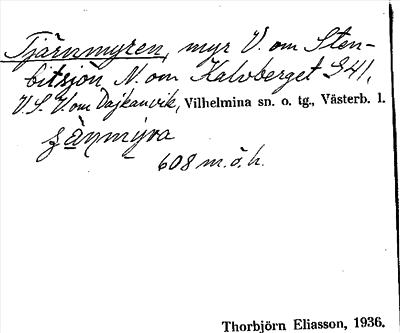 Tjärnmyren, myr V. om Sten-
bitsjön N. om Kalvberget S 41,
V. S. V. om Dajkanvik, Vilhelmina sn. o. tg., Västerb. l.
608 m.ö.h.
Thorbjörn Eliasson, 1936.